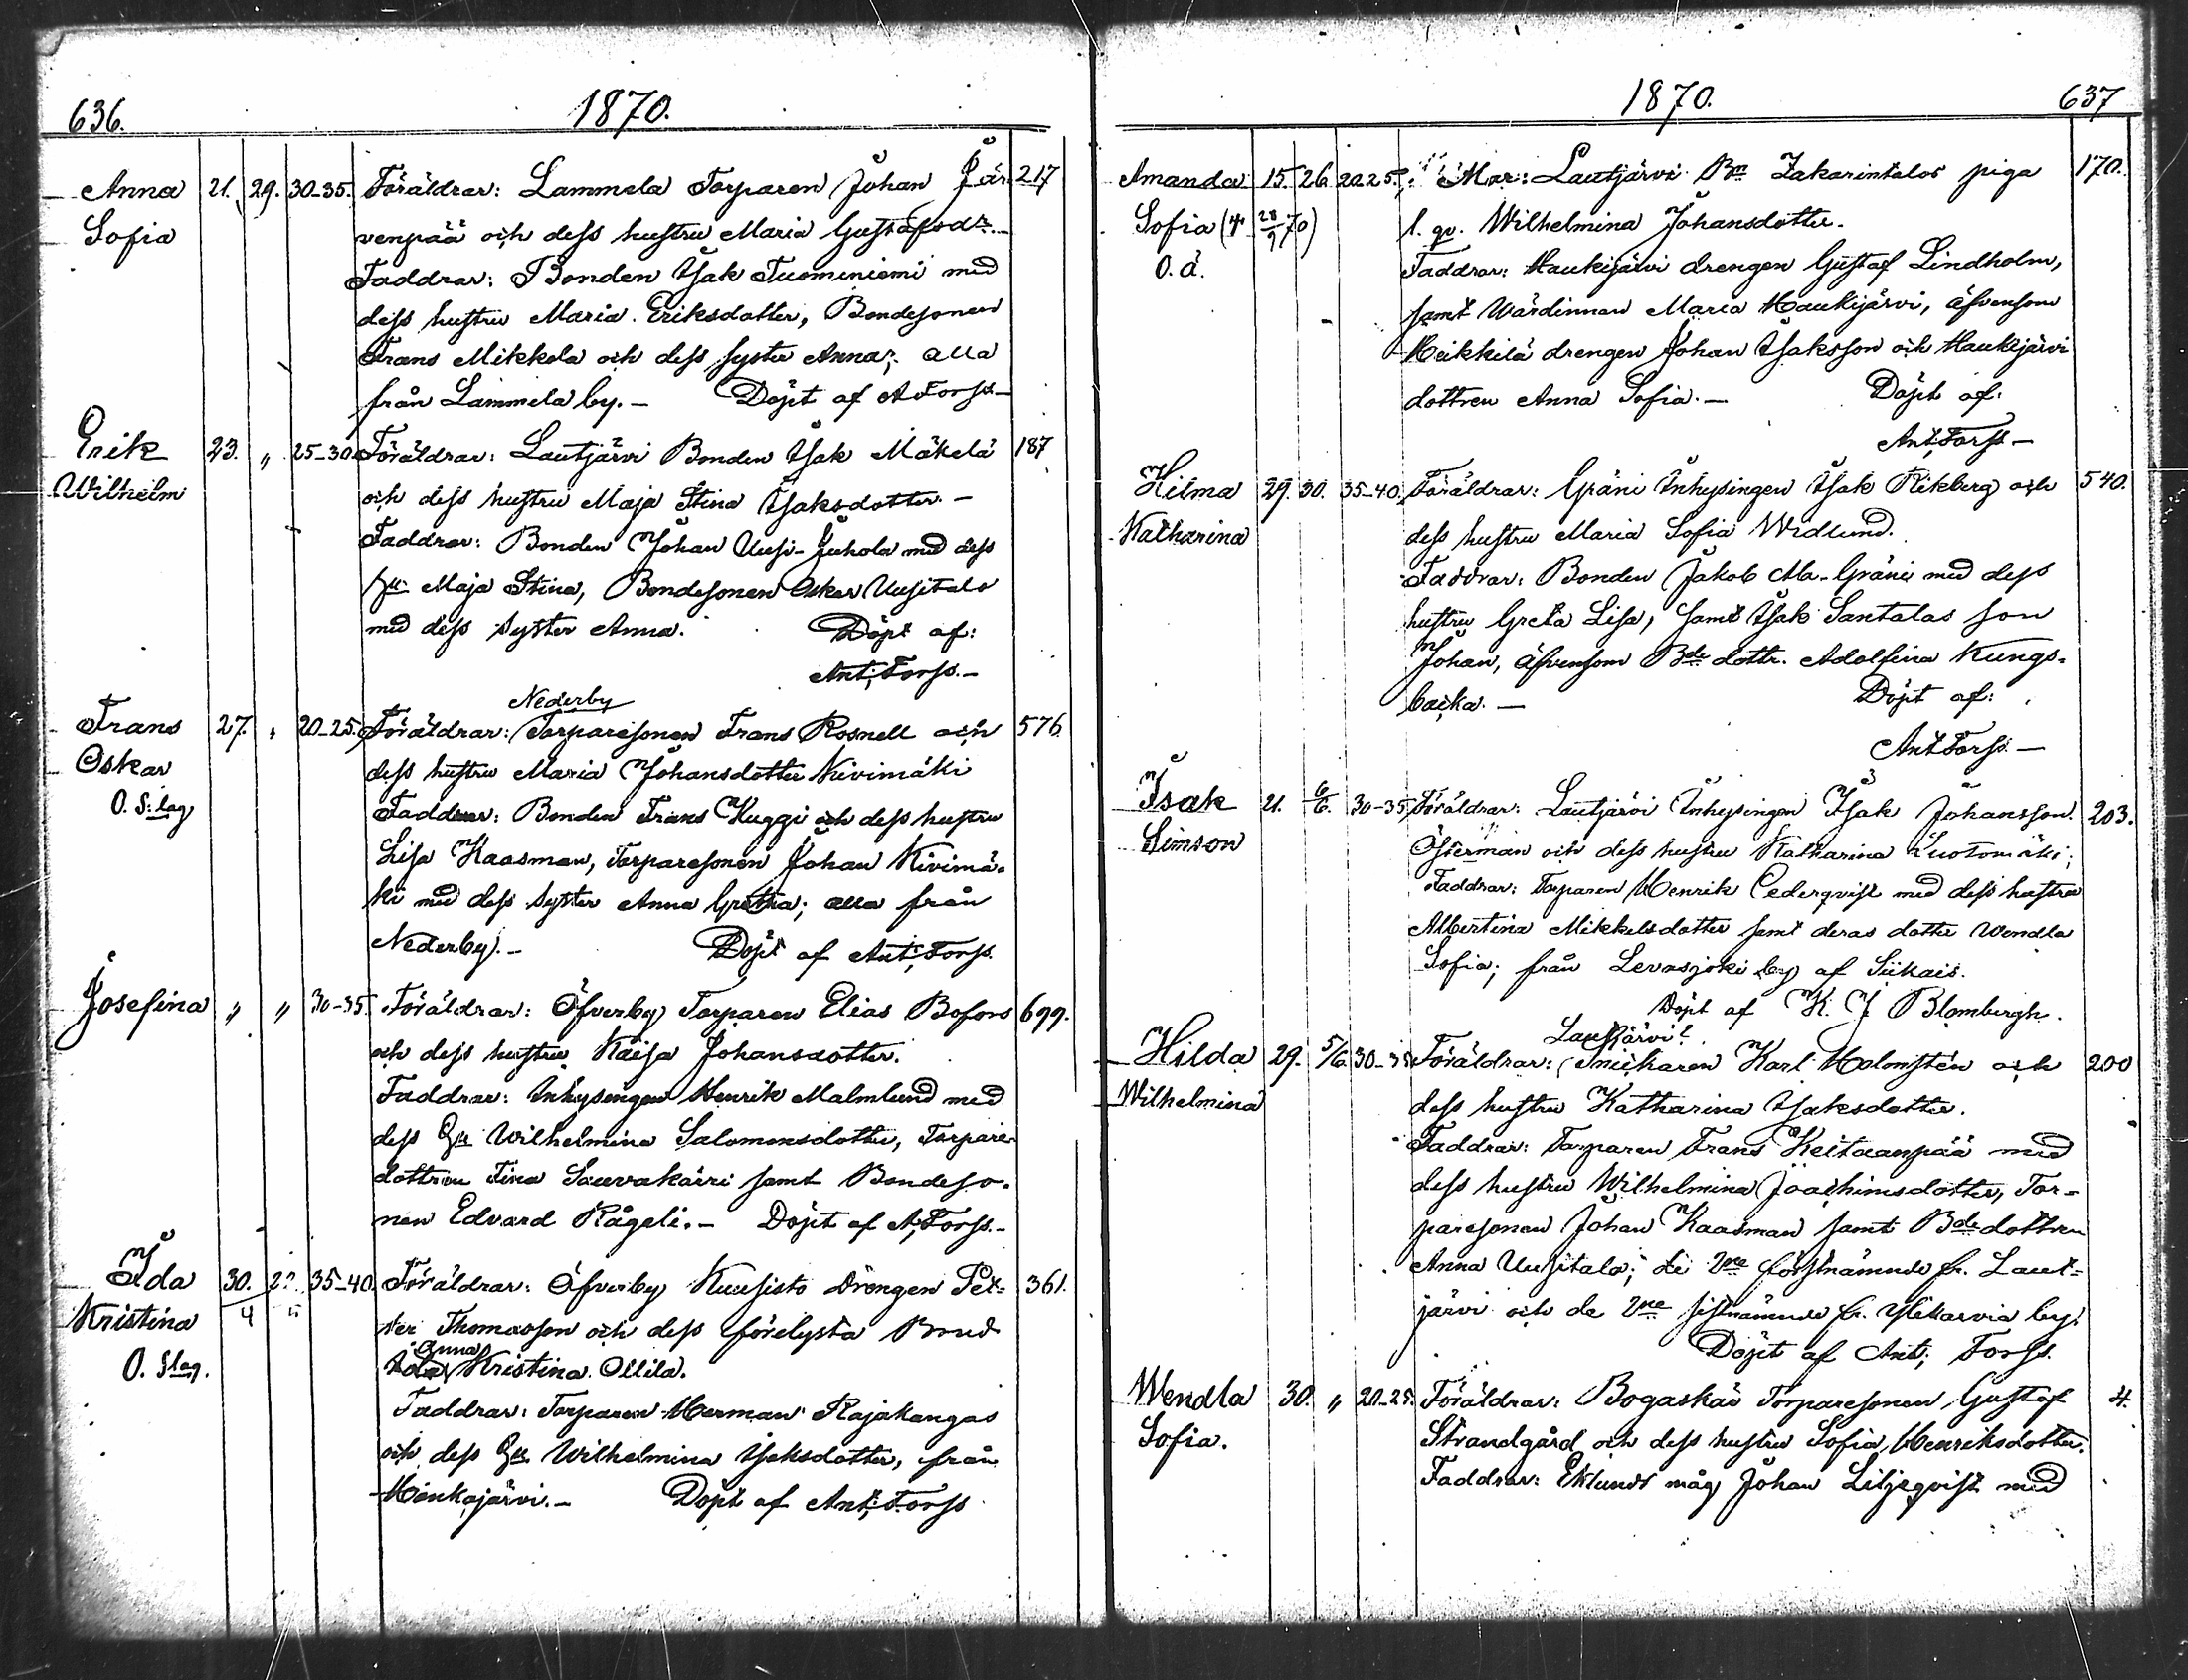 636. 1870.
Anna 21. 29. 30-35. Föräldrar: Lammela Torparen Johan Jär- 217
Sofia venpää och dess hustru Maria Gustafsdr.-
Faddrar: Bonden Isak Tuominiemi med
dess hustru Maria Eriksdotter, Bondesonen
Frans Mikkola och dess syster Anna; alla
från Lammela by.- Döpt af A Forss-
Erik 23. " 25-30. Föräldrar: Lautjärvi Bonden Isak Mäkelä 187
Wilhelm och dess hustru Maja Stina Isaksdotter.-
Faddrar: Bonden Johan Uusi-Juhola med dess
hu Maja Stina, Bondesonen Oskar Uusitalo
med dess syster Anna. Döpt af:
Ant; Forss.-
Nederby
Frans 27. " 20-25. Föräldrar: Torparesonen Frans Rosnell och 576
Oskar dess hustru Maria Johansdotter Kivimäki
O. S:lag Faddrar: Bonden Frans Kuggi och dess hustru
Lisa Kaasman, Torparesonen Johan Kivimä-
ki med dess syster Anna Gretha; alla från
Nederby.- Döpt af Ant; Forss.
Josefina " " 30-35. Föräldrar: Öfverby Torparen Elias Bofors 699.
och dess hustru Kaisa Johansdotter.
Faddrar: Inhysingen Henrik Malmlund med
dess Hu Wilhelmina Salomonsdotter, Torpare-
dottren Tina Sauvakärri samt Bondeso-
nen Edvard Rågeli.- Döpt af A; Forss.-
Ida 30. 35-40. Föräldrar: Öfverby Kuusisto Drengen Pet- 361.
Kristina 4 ter Thomasson och dess förelysta Brud
Anna
O. Slag. Ida Kristina Ollila.
Faddrar: Torparen Herman Rajakangas
och dess Hu. Wilhelmina Isaksdotter, från
Honkajärvi.- Döpt af Ant; Forss
1870. 637
Amanda 15. 26. 20-25. Mor: Lautjärvi Bn Zakarintalos piga 170.
Sofia († 28/9 70) l. qv. Wilhelmina Johansdotter.
O. ä. Faddrar: Haukijärvi drengen Gustaf Lindholm,
samt Wärdinnan Maria Haukijärvi, äfvensom
Heikkilä drengen Johan Isaksson och Haukijärvi
dottren Anna Sofia.- Döpt af:
Ant; Forss-
Hilma 29. 30. 35-40. Föräldrar: Gräni Inhysingen Isak Rikberg och 540.
Katharina dess hustru Maria Sofia Widlund.
Faddrar: Bonden Jakob Ala-Gräni med dess
hustru Greta Lisa, samt Isak Santalas son
Johan, äfvensom Bde dottr. Adolfina Kungs-
backa.- Döpt af:
Ant Forss.-
Isak 21. 6/6. 30-35. Föräldrar: Lautjärvi Inhysingen Isak Johansson 203.
Simson Österman och dess hustru Katharina Luotomäki;
Faddrar: Torparen Henrik Cederqvist med dess hustru
Albertina Mikkelsdotter samt deras dotter Wendla
Sofia; från Levasjoki by af Siikais.
Döpt af K. J Blombergh.
Lautjärvi?
Hilda 29. 5/6. 30-35 Föräldrar: Snickaren Karl Holmstén och 200
Wilhelmina dess hustru Katharina Isaksdotter.
Faddrar: Torparen Frans Keitaanpää med
dess hustru Wilhelmina Joachimsdotter, Tor-
paresonen Johan Kaasman samt Bde dottren
Anna Uusitalo; de 2ne förstnämnde fr. Laut-
järvi och de 2ne sistnämnde fr. Ylikarvia by.
Döpt af Ant; Forss.
Wendla 30. " 20-25. Föräldrar: Bogaskär Torparesonen Gustaf 4.
Sofia. Strandgård och dess hustru Sofia Henriksdotter.
Faddrar: Eklunds måg Johan Liljeqvist med